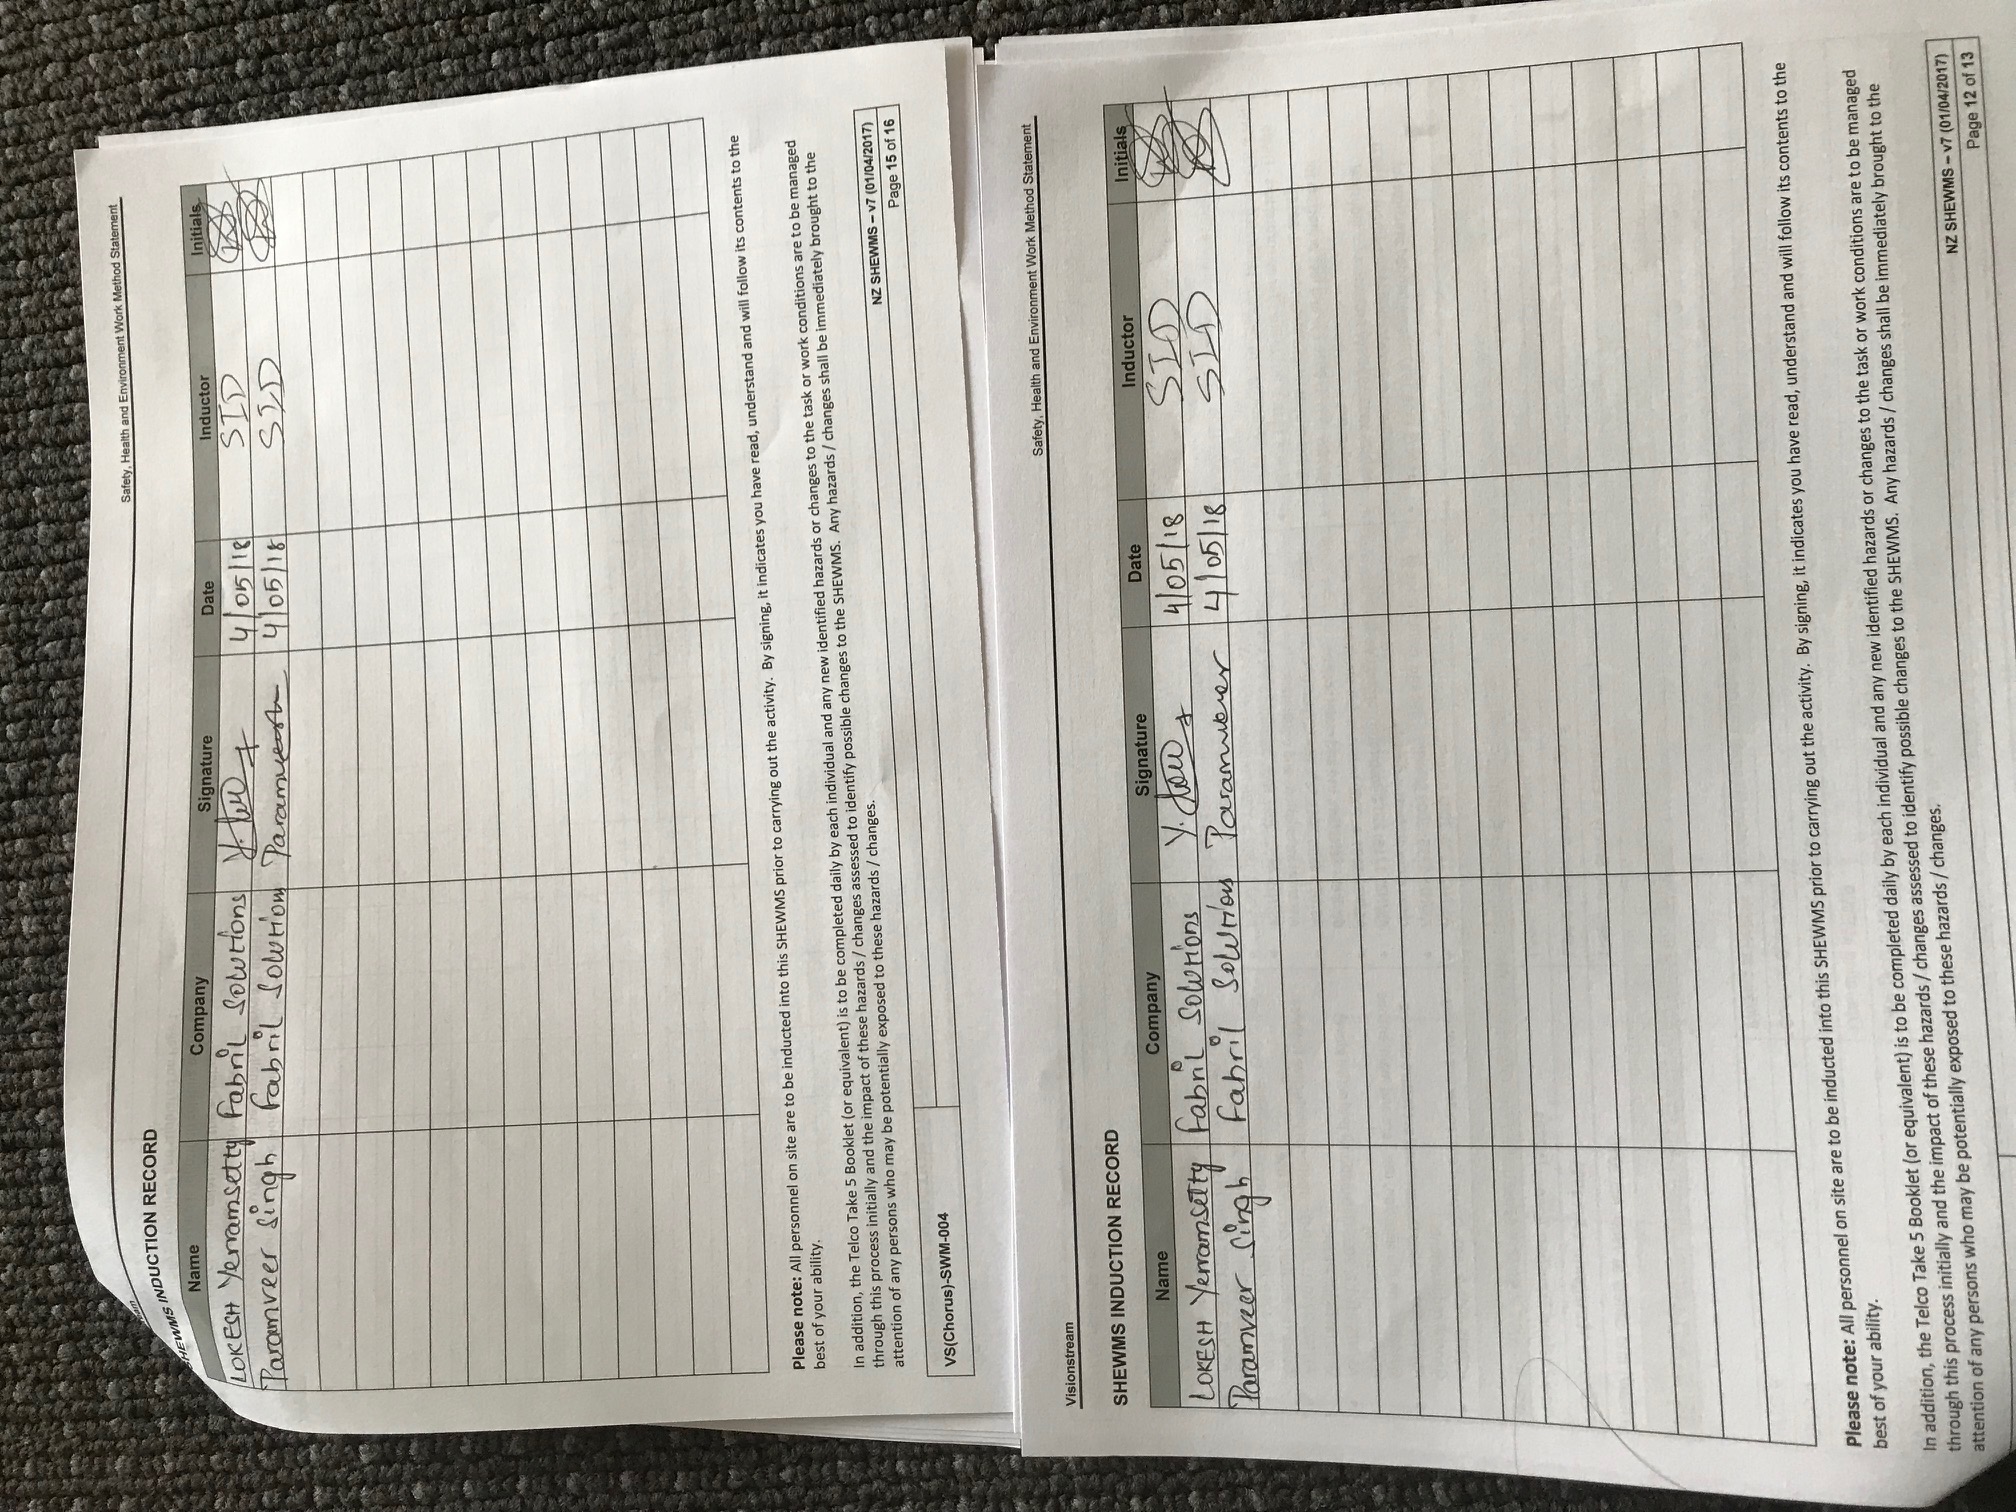 Safety, Health and Environment Work Method Statement
SHEWMS INDUCTION RECORD
Name Company Signature Date Inductor Initials
LOKESH Yerramsetty Fabril Solutions 4/05/18 SID
Paramveer Singh Fabril Solution 4/05/18 SID
Please note: All personnel on site are to be inducted into this SHEWMS prior to carrying out the activity. By signing, it indicates you have read, understand and will follow its contents to the
best of your ability.
In addition, the Telco Take 5 Booklet (or equivalent) is to be completed daily by each individual and any new identified hazards or changes to the task or work conditions are to be managed
through this process initially and the impact of these hazards / changes assessed to identify possible changes to the SHEWMS. Any hazards / changes shall be immediately brought to the
attention of any persons who may be potentially exposed to these hazards / changes.
NZ SHEWMS – v7 (01/04/2017)
Page 15 of 16
VS(Chorus)-SWM-004
Safety, Health and Environment Work Method Statement
Visionstream
SHEWMS INDUCTION RECORD
Name Company Signature Date Inductor Initials
LOKESH Yerramsetty Fabril Solutions 4/05/18 SID
Paramveer Singh Fabril Solutions Paramveer 4/05/18 SID
Please note: All personnel on site are to be inducted into this SHEWMS prior to carrying out the activity. By signing, it indicates you have read, understand and will follow its contents to the
best of your ability.
In addition, the Telco Take 5 Booklet (or equivalent) is to be completed daily by each individual and any new identified hazards or changes to the task or work conditions are to be managed
through this process initially and the impact of these hazards / changes assessed to identify possible changes to the SHEWMS. Any hazards / changes shall be immediately brought to the
attention of any persons who may be potentially exposed to these hazards / changes.
NZ SHEWMS – v7 (01/04/2017)
Page 12 of 13